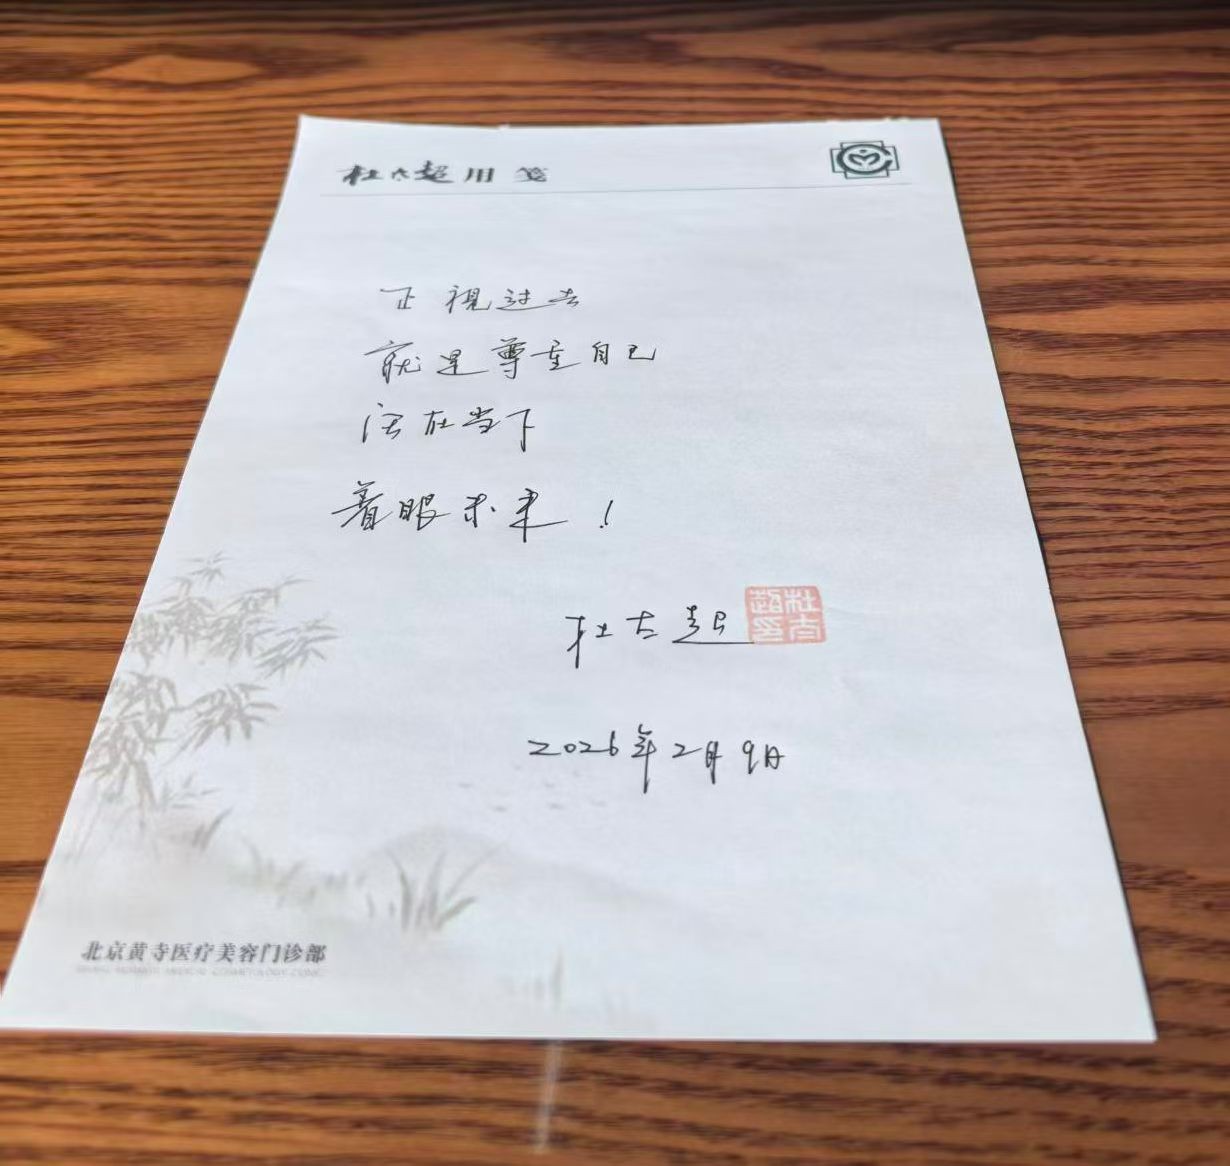 杜太超用笺
正视过去
就是尊重自己
活在当下
着眼未来！
杜太超
杜太超印
2026年2月9日
北京黄寺医疗美容门诊部